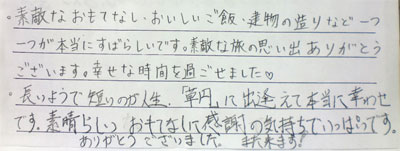 ・素敵なおもてなし・おいしいご飯・建物の造りなど一つ
一つが本当にすばらしいです。素敵な旅の思い出ありがとう
ございます。幸せな時間を過ごせました♡
・長いようで短いのが人生、「草円」に出逢えて本当に幸わせ
です。素晴らしい おもてなしに感謝の気持ちでいっぱいです。
ありがとうございました。 また来ます!